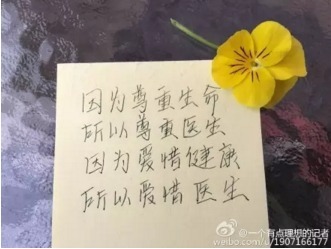 因为尊重生命
所以尊重医生
因为爱惜健康
所以爱惜医生
@一个有点理想的记者
weibo.com/u/1907166177